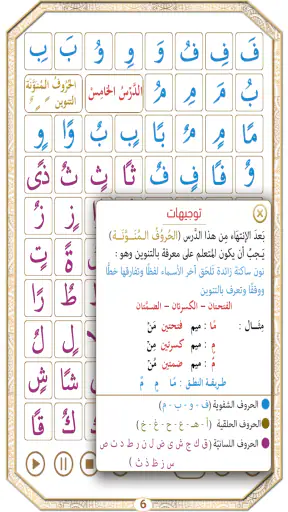 فَ فِ فُ وَ وِ وُ بَ بِ
بُ مَ مِ مُ الدَّرْسُ الخامِسُ الحُروفُ المُنَوَّنَة التنوين ــًــٍــٌ
مًا مٍ مٌ بًا بٍ بٌ وًا وٍ
وٌ فًا فٍ فٌ ثًا ثٍ ثٌ ذًى
زٍ زٌ
ةً تٍ
طٌ رًا
لٍ لٌ
شًا شٍ
كٍ كٌ قًا
توجيهات
بَعدَ الإنتهَاءِ مِن هذا الدَّرسِ (الحُرُوُفُ المُنَوَّنَة)
يَجِبُ أن يكونَ المتعلم على معرفة بالتنوين وهو :
نون ساكنة زائدة تلحق آخر الأسماء لفظًا وتفارقها خطًّا
ووقفًا وتعرف بالتنوين
الفتحتان - الكسرتان - الضمتان
مِثال : مًا : ميم فتحتين مًنْ
مٍ : ميم كسرتين مٍنْ
مٌ : ميم ضمتين مٌنْ
طريقة النطق : مًا مٍ مٌ
الحروف الشفوية (ف - و - ب - م)
الحروف الحلقية (أ - هـ - ع - ح - غ - خ)
الحروف اللسانيَّة (ق ك ج ش ي ض ل ن ر ط د ت ص
س ز ظ ذ ث)
6